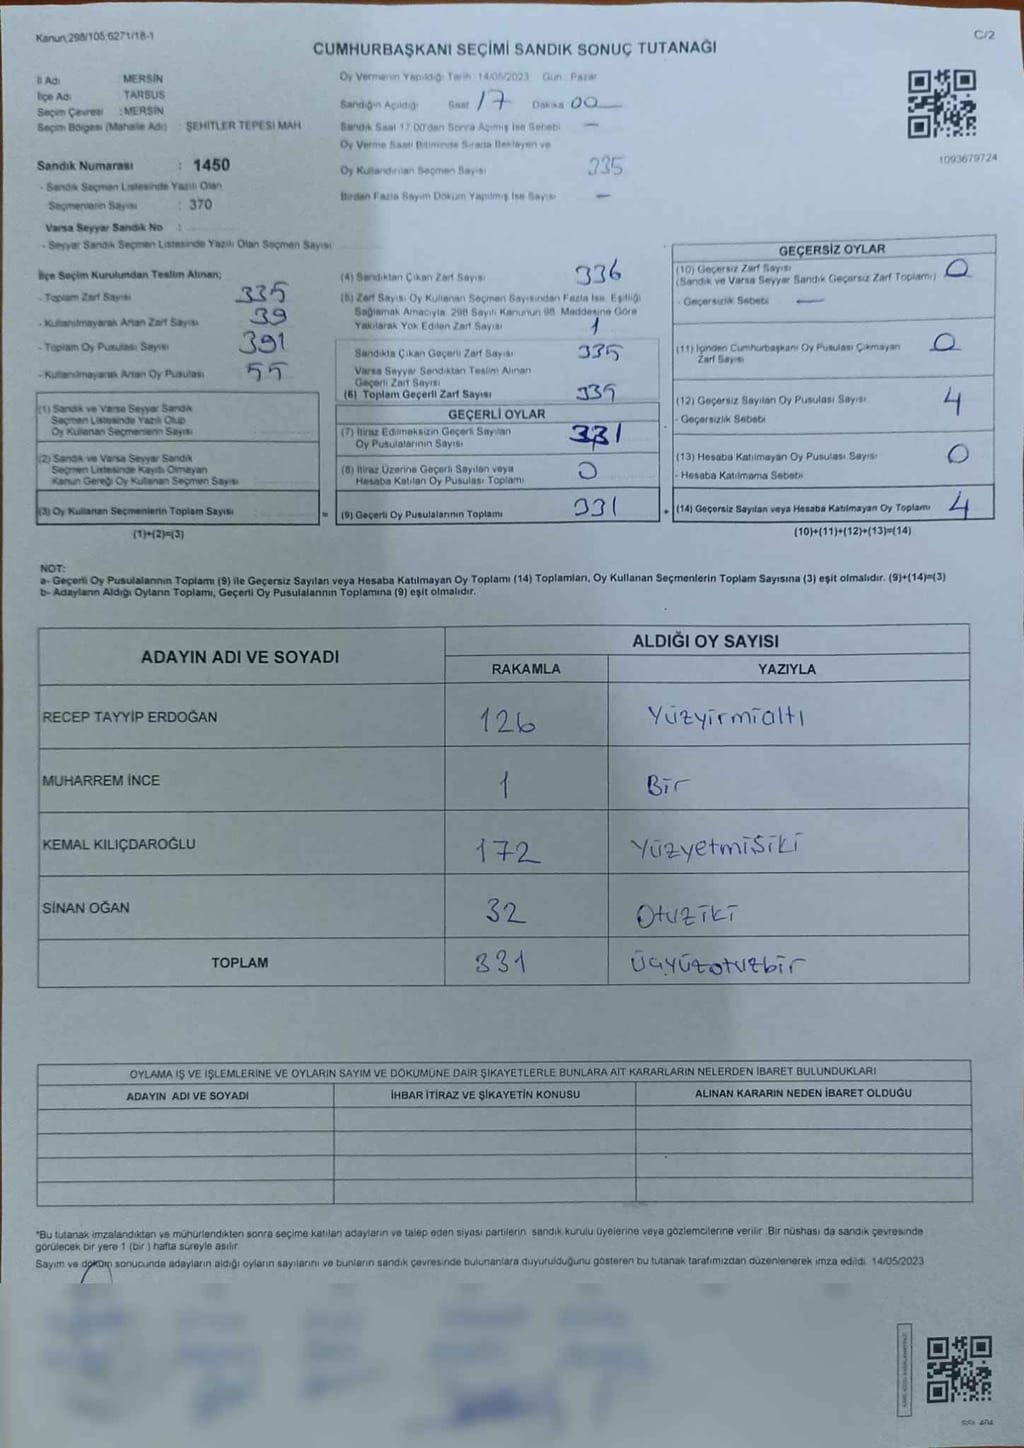 Kanun,298/105,6271/18-1
C/2
CUMHURBAŞKANI SEÇİMİ SANDIK SONUÇ TUTANAĞI
İl Adı MERSİN
İlçe Adı TARSUS
Seçim Çevresi : MERSİN
Seçim Bölgesi (Mahalle Adı) ŞEHİTLER TEPESİ MAH
Sandık Numarası : 1450
- Sandık Seçmen Listesinde Yazılı Olan
Seçmenlerin Sayısı : 370
Varsa Seyyar Sandık No :
- Seyyar Sandık Seçmen Listesinde Yazılı Olan Seçmen Sayısı
Oy Vermenin Yapıldığı Tarih : 14/05/2023 Gün : Pazar
Sandığın Açıldığı Saat 17 Dakika 00
Sandık Saat 17:00'den Sonra Açılmış İse Sebebi —
Oy Verme Saati Bitiminde Sırada Bekleyen ve
Oy Kullandırılan Seçmen Sayısı 335
Birden Fazla Sayım Döküm Yapılmış İse Sayısı —
1093679724
İlçe Seçim Kurulundan Teslim Alınan;
- Toplam Zarf Sayısı 335
- Kullanılmayarak Artan Zarf Sayısı 39
- Toplam Oy Pusulası Sayısı 391
- Kullanılmayarak Artan Oy Pusulası 55
(1) Sandık ve Varsa Seyyar Sandık
Seçmen Listesinde Yazılı Olup
Oy Kullanan Seçmenlerin Sayısı
(2) Sandık ve Varsa Seyyar Sandık
Seçmen Listesinde Kayıtlı Olmayan
Kanun Gereği Oy Kullanan Seçmen Sayısı
(3) Oy Kullanan Seçmenlerin Toplam Sayısı =
(1)+(2)=(3)
(4) Sandıktan Çıkan Zarf Sayısı 336
(5) Zarf Sayısı Oy Kullanan Seçmen Sayısından Fazla İse, Eşitliği
Sağlamak Amacıyla, 298 Sayılı Kanunun 98. Maddesine Göre
Yakılarak Yok Edilen Zarf Sayısı 1
Sandıkta Çıkan Geçerli Zarf Sayısı 335
Varsa Seyyar Sandıktan Teslim Alınan
Geçerli Zarf Sayısı
(6) Toplam Geçerli Zarf Sayısı 335
GEÇERLİ OYLAR
(7) İtiraz Edilmeksizin Geçerli Sayılan
Oy Pusulalarının Sayısı 331
(8) İtiraz Üzerine Geçerli Sayılan veya
Hesaba Katılan Oy Pusulası Toplamı 0
(9) Geçerli Oy Pusulalarının Toplamı 331 +
GEÇERSİZ OYLAR
(10) Geçersiz Zarf Sayısı
(Sandık ve Varsa Seyyar Sandık Geçersiz Zarf Toplamı) 0
- Geçersizlik Sebebi —
(11) İçinden Cumhurbaşkanı Oy Pusulası Çıkmayan
Zarf Sayısı 0
(12) Geçersiz Sayılan Oy Pusulası Sayısı 4
- Geçersizlik Sebebi
(13) Hesaba Katılmayan Oy Pusulası Sayısı 0
- Hesaba Katılmama Sebebi
(14) Geçersiz Sayılan veya Hesaba Katılmayan Oy Toplamı 4
(10)+(11)+(12)+(13)=(14)
NOT:
a- Geçerli Oy Pusulalarının Toplamı (9) ile Geçersiz Sayılan veya Hesaba Katılmayan Oy Toplamı (14) Toplamları, Oy Kullanan Seçmenlerin Toplam Sayısına (3) eşit olmalıdır. (9)+(14)=(3)
b- Adayların Aldığı Oyların Toplamı, Geçerli Oy Pusulalarının Toplamına (9) eşit olmalıdır.
ADAYIN ADI VE SOYADI
ALDIĞI OY SAYISI
RAKAMLA YAZIYLA
RECEP TAYYİP ERDOĞAN 126 Yüzyirmialtı
MUHARREM İNCE 1 Bir
KEMAL KILIÇDAROĞLU 172 Yüzyetmişiki
SİNAN OĞAN 32 Otuziki
TOPLAM 331 Üçyüzotuzbir
OYLAMA İŞ VE İŞLEMLERİNE VE OYLARIN SAYIM VE DÖKÜMÜNE DAİR ŞİKAYETLERLE BUNLARA AİT KARARLARIN NELERDEN İBARET BULUNDUKLARI
ADAYIN ADI VE SOYADI İHBAR İTİRAZ VE ŞİKAYETİN KONUSU ALINAN KARARIN NEDEN İBARET OLDUĞU
*Bu tutanak imzalandıktan ve mühürlendikten sonra seçime katılan adayların ve talep eden siyasi partilerin sandık kurulu üyelerine veya gözlemcilerine verilir. Bir nüshası da sandık çevresinde
görülecek bir yere 1 (bir ) hafta süreyle asılır.
Sayım ve döküm sonucunda adayların aldığı oyların sayılarını ve bunların sandık çevresinde bulunanlara duyurulduğunu gösteren bu tutanak tarafımızdan düzenlenerek imza edildi. 14/05/2023